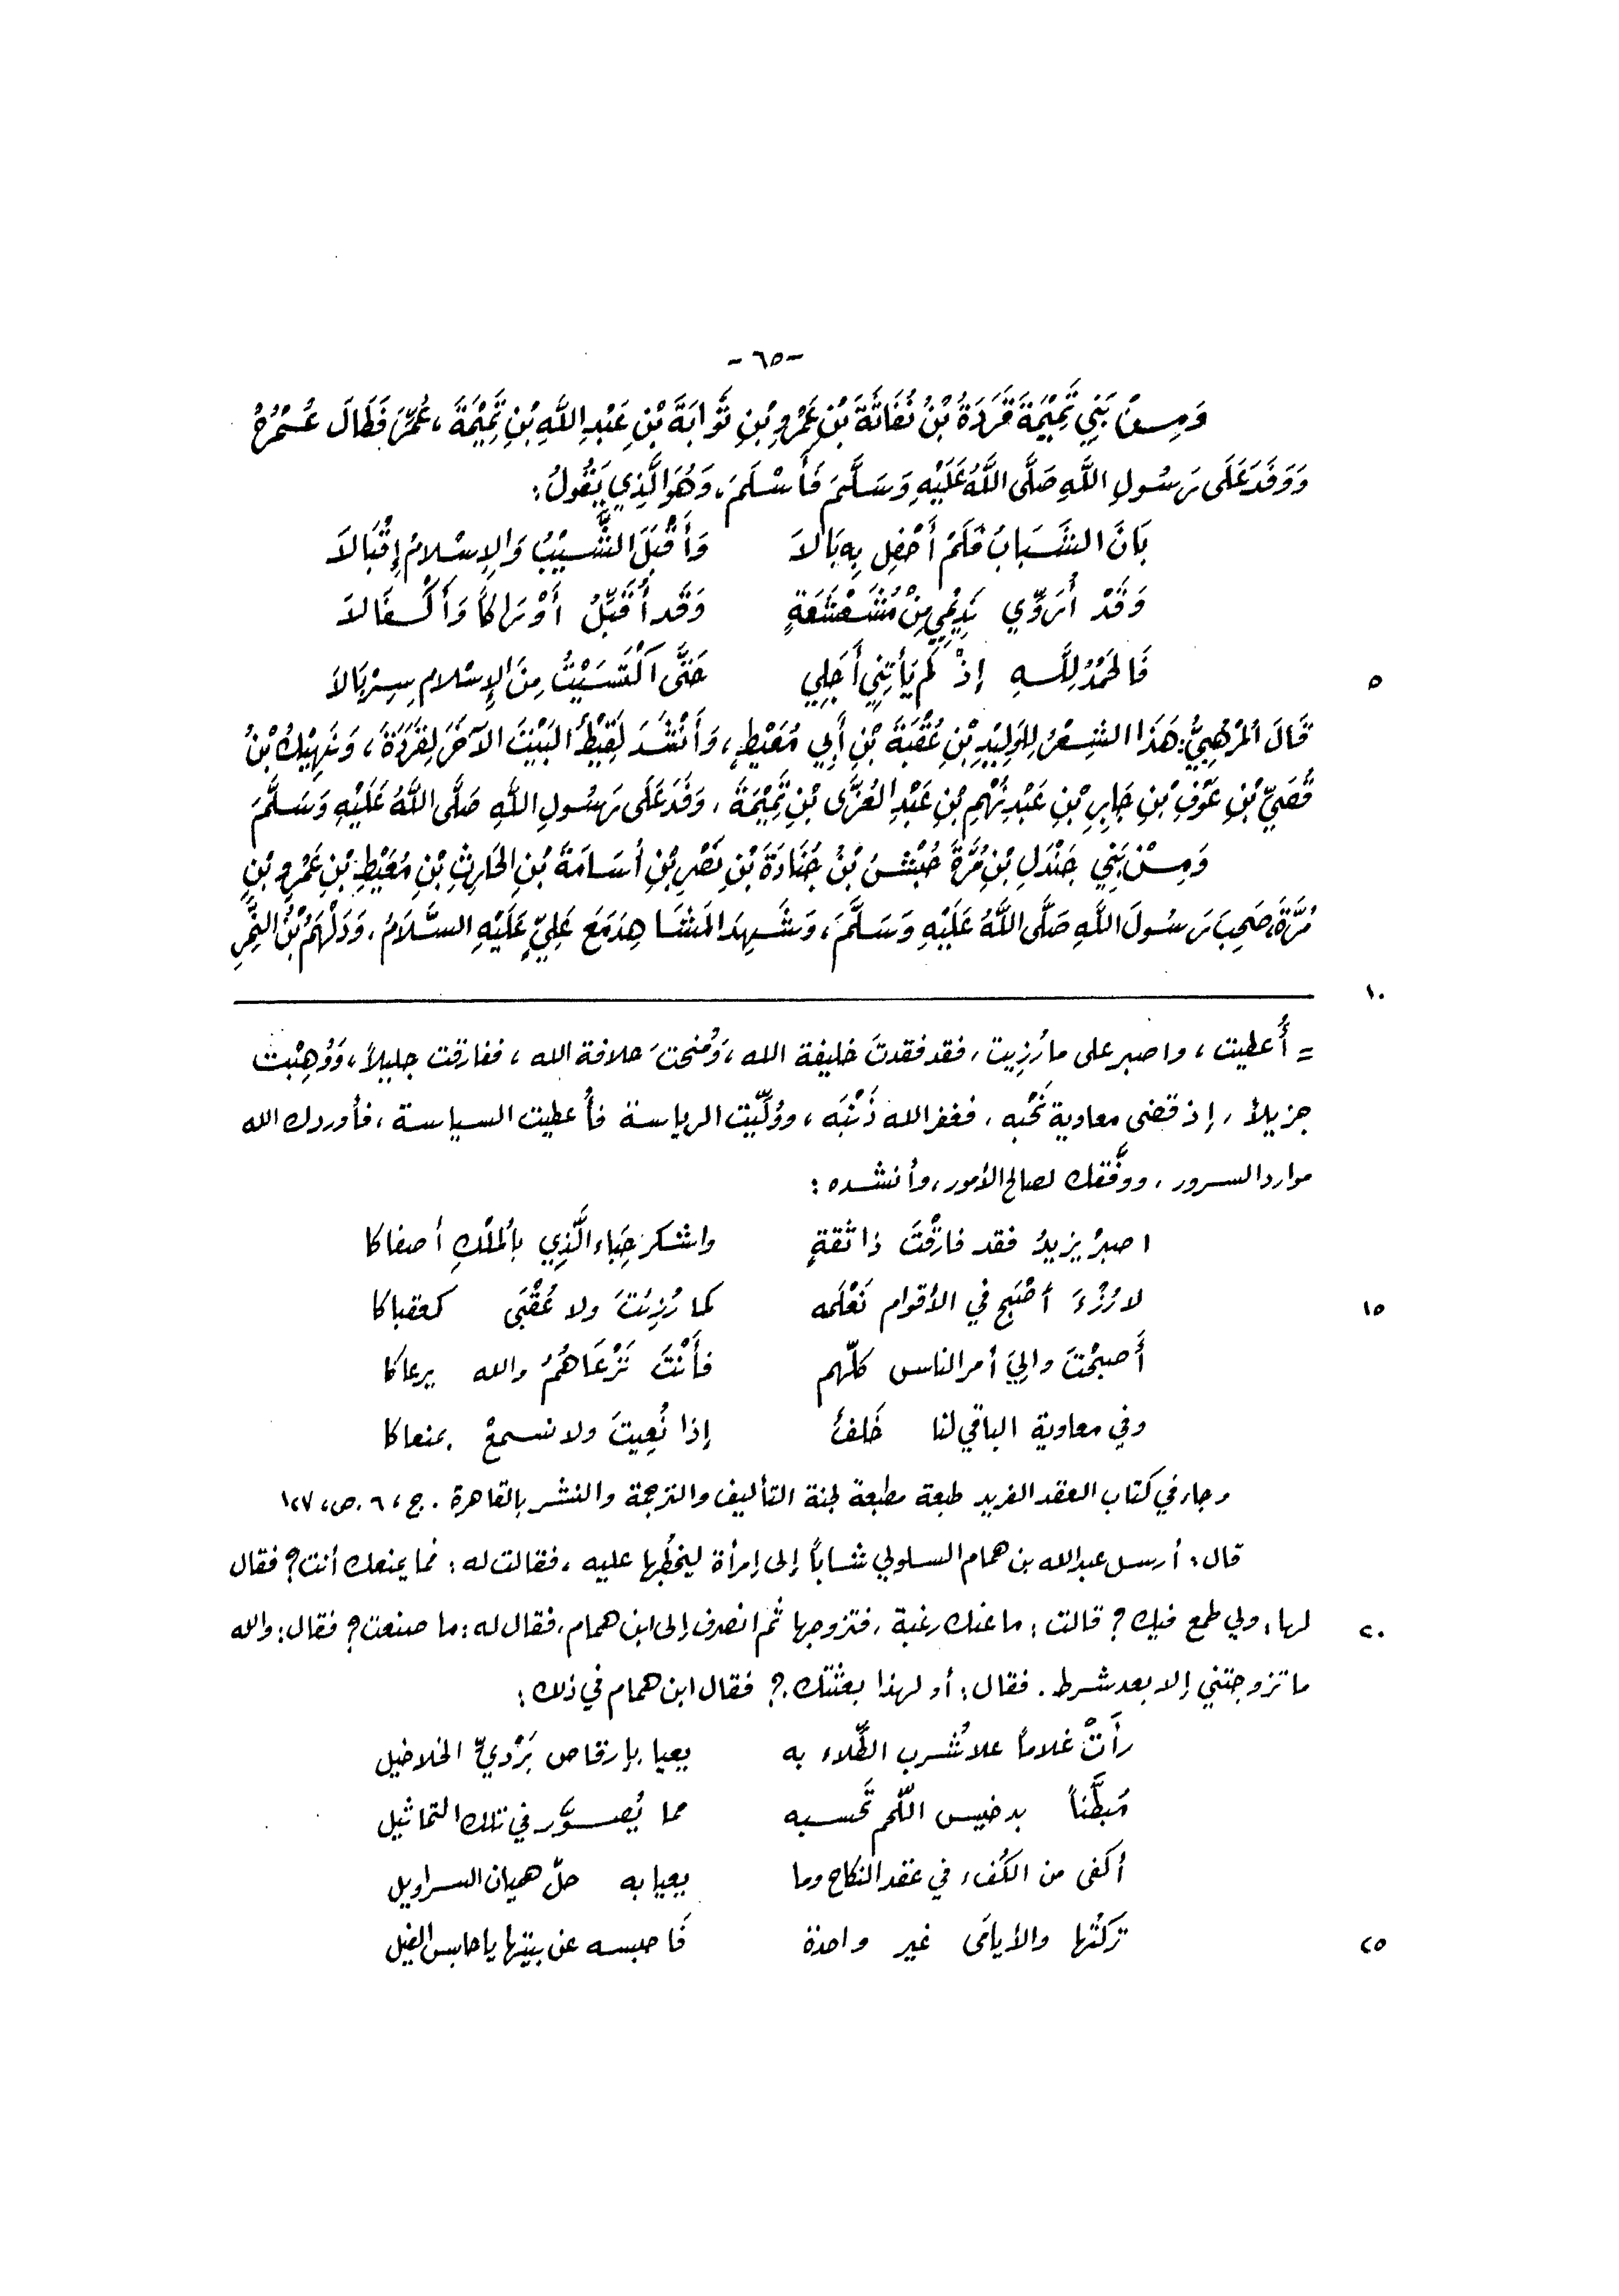 -٦٥-
وَمِنْ بَنِي تَمِيْمَةَ قَرَدَةُ بْنُ نُفَاثَةَ بْنِ عَمْرِو بْنِ ثَوَابَةَ بْنِ عَبْدِ اللَّهِ بْنِ تَمِيْمَةَ، عُمِّرَ فَطَالَ عُمْرُهُ
وَوَفَدَ عَلَى رَسُولِ اللَّهِ صَلَّى اللَّهُ عَلَيْهِ وَسَلَّمَ فَأَسْلَمَ، وَهُوَ الَّذِي يَقُولُ:
بَانَ الشَّبَابُ فَلَمْ أَحْفِل بِهِ بَالَا وَأَقْبَلَ الشَّيْبُ وَالإِسْلَامُ إِقْبَالَا
وَقَدْ أُرَوِّي نَدِيْمِي مِنْ مُشَعْشَعَةٍ وَقَد أُقَبِّلُ أَوْرَاكاً وَأَكْفَالَا
٥ فَالحَمْدُ لِلَّهِ إِذْ لَم يَأْتِنِي أَجَلِي حَتَّى اكْتَسَيْتُ مِنَ الإِسْلَامِ سِرْبَالَا
قَالَ المُرْهِبِيُّ: هَذَا الشِّعْرُ لِلوَلِيْدِ بْنِ عُقْبَةَ بْنِ أَبِي مُعَيْطٍ، وَأَنْشَدَ لَقِيْطُ البَيْتَ الآخَرَ لِقَرَدَةَ، وَنَهِيْكُ بْنُ
قُصَيِّ بْنِ عَوْفِ بْنِ جَابِرِ بْنِ عَبْدِ نُهْمِ بْنِ عَبْدِ العُزَّى بْنِ تَمِيْمَةَ، وَفَدَ عَلَى رَسُولِ اللَّهِ صَلَّى اللَّهُ عَلَيْهِ وَسَلَّمَ
وَمِنْ بَنِي جَنْدَلِ بْنِ مُرَّةَ حُبْشُ بْنُ جُنَادَةَ بْنِ نَصْرِ بْنِ أُسَامَةَ بْنِ الحَارِثِ بْنِ مُعَيْطِ بْنِ عَمْرِو بْنِ
مُرَّةَ، صَحِبَ رَسُولَ اللَّهِ صَلَّى اللَّهُ عَلَيْهِ وَسَلَّمَ، وَشَهِدَ المَشَاهِدَ مَعَ عَلِيٍّ عَلَيْهِ السَّلَامُ، وَدَلْهَمُ بْنُ النَّمِرِ
١٠
= أُعطيت، واصبر على ما رُزِيت، فقد فقدتَ خليفة الله، وَمُنحتَ خلافة الله، ففارقت جليلاً، وَوُهِبْت
جزيلاً، إذ قضى معاوية نَحْبَه، فغفر الله ذَنْبَه، ووُلِّيت الرياسة فأُعطيت السياسة، فأوردك الله
موارد السرور، ووفَّقك لصالح الأمور، وأنشده:
اصبرْ يزيدُ فقد فارَقْتَ ذا ثقةٍ واشكر حِبَاء الَّذِي بالمُلْكِ أصفاكا
١٥ لا رُزْءَ أَصْبَحَ في الأقوام نَعْلَمه كما رُزِئتَ ولا عُقْبَى كعقباكا
أَصبحْتَ واليَ أمر الناس كلّهم فأَنْتَ تَرْعَاهُمُ والله يرعاكا
وفي معاوية الباقي لنا خَلفٌ إذا نُعِيتَ ولا نسمعْ بمنعاكا
وجاء في كتاب العقد الفريد طبعة مطبعة لجنة التأليف والترجمة والنشر بالقاهرة. ج، ٦. ص، ١٢٧
قال: أرسل عبدالله بن همام السلولي شاباً إلى إمرأة ليخطُبها عليه، فقالت له: فما يمنعك أنت؟ فقال
٢٠ لها: ولي طمع فيك؟ قالت: ما عنك رغبة، فتزوجها ثم انصرف إلى ابن همام، فقال له: ما صنعت؟ فقال: والله
ما تزوجتني إلا بعد شرط. فقال: أو لهذا بعثتك؟ فقال ابن همام في ذلك:
رأَتْ غلاماً علا شُرب الطِّلاء به يعيا بإرقاص بَرْديِّ الخلاخيل
مُبطَّناً بدخيس اللَّحم تَحسبه مما يُصوَّر في تلك التماثيل
أكفى من الكُفء في عقد النكاح وما يعيا به حلّ هميان السراويل
٢٥ تركتُها والأيامَى غير واحدة فَاحبسه عن بيتها يا حابس الفيل